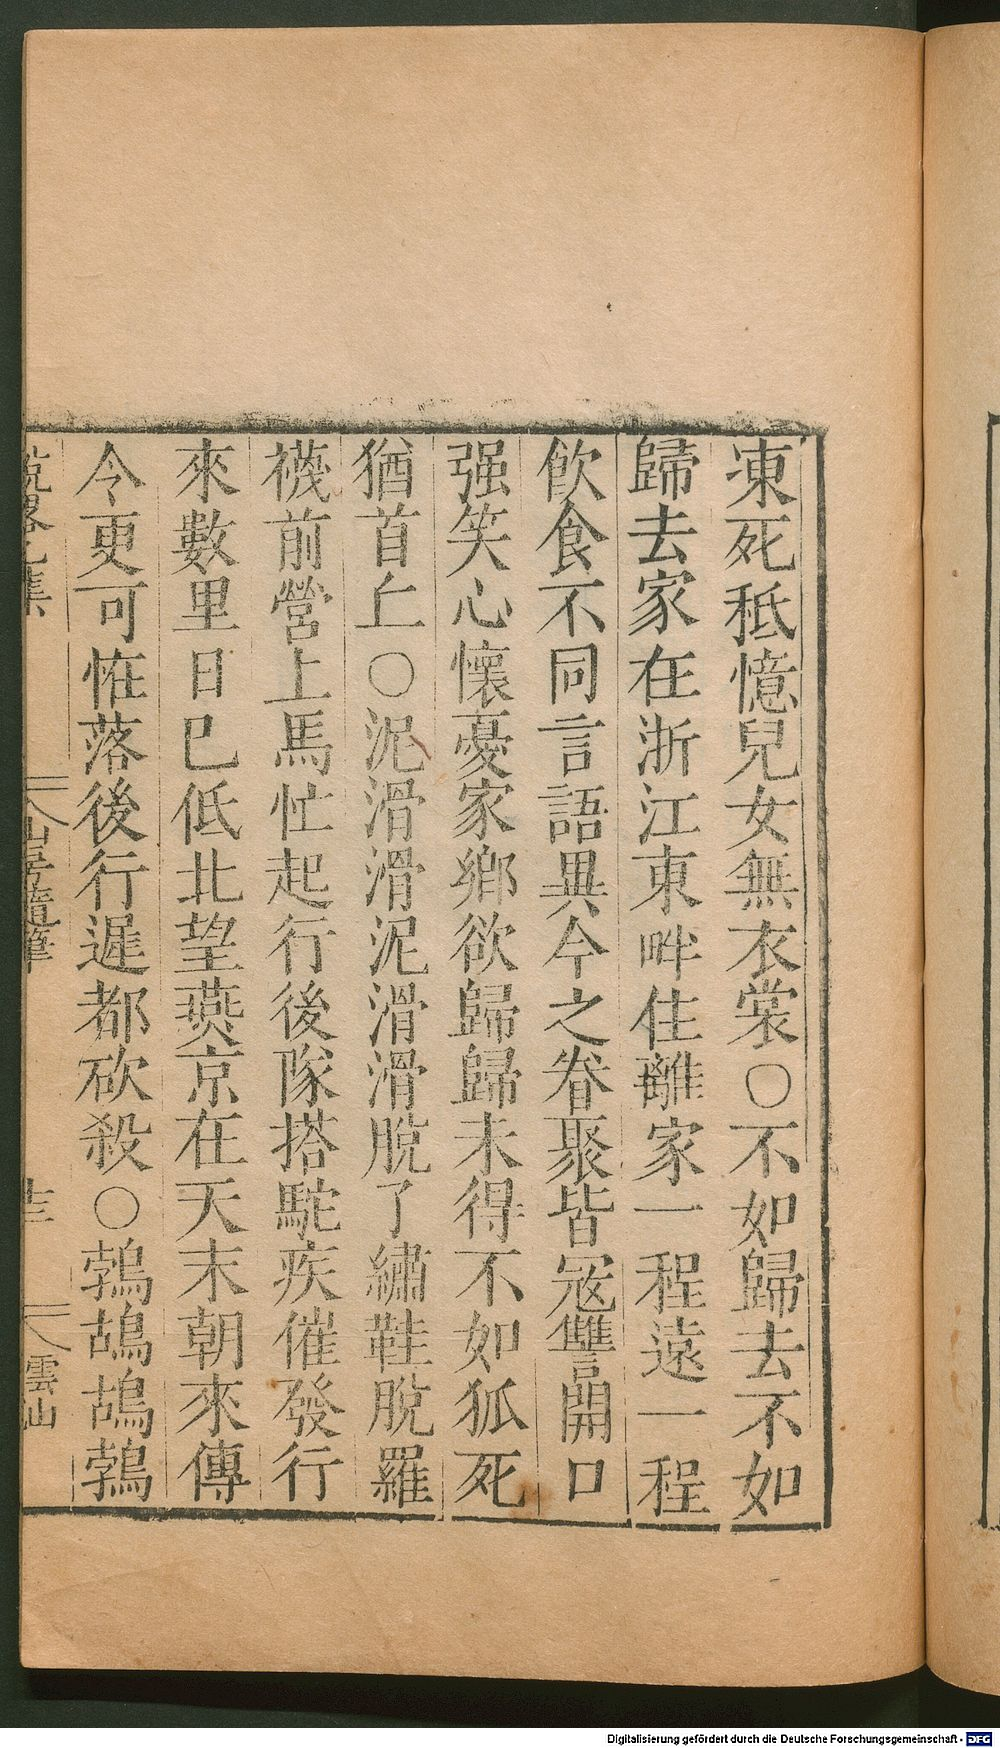 凍死秪憶兒女無衣裳○不如歸去不如
歸去家在浙江東畔住離家一程遠一程
飲食不同言語異今之眷聚皆冦讐開口
强笑心懷憂家鄉欲歸歸未得不如狐死
猶首丘○泥滑滑泥滑滑脫了繡鞋脫羅
襪前營上馬忙起行後隊搭駝疾催發行
來數里日已低北望燕京在天末朝來傳
令更可恠落後行遲都砍殺○鵓鴣鴣鵓
說畧乙集
山房隨筆
雲山
Digitalisierung gefördert durch die Deutsche Forschungsgemeinschaft - DFG